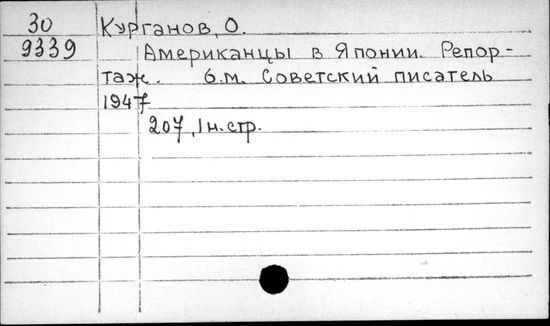 30 Курганов, О.
9339 Американцы в Японии. Репор-
таж. б.м. Советский писатель
1947
207, 1н.стр.